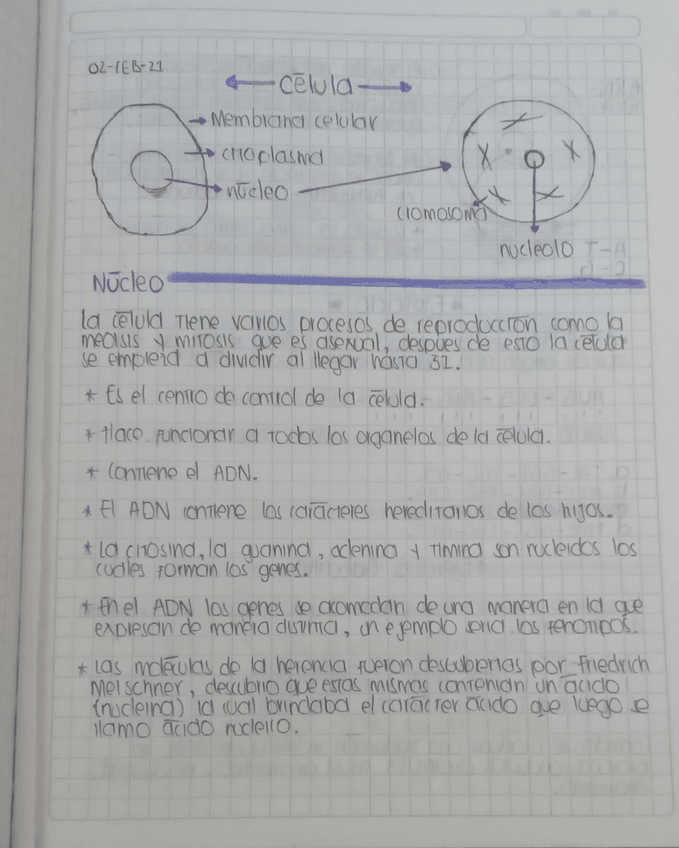 02-FEB-21
célula
Membrana celular
citoplasma
núcleo
cromosoma
nucleolo
Núcleo
La célula tiene varios procesos de reproducción como la
meiosis y mitosis que es asexual, despues de esto la célula
se empieza a dividir al llegar hasta 32.
* Es el centro de control de la célula.
* Hace funcionar a todos los organelos de la célula.
* Contiene el ADN.
* El ADN contiene los carácteres hereditarios de los hijos.
* La citosina, la guanina, adenina y timina son nucleidos los
cuales forman los genes.
* En el ADN los genes se acomodan de una manera en la que
expresan de manera distinta, un ejemplo seria los fenotipos.
* Las moléculas de la herencia fueron descubiertas por Friedrich
Meischner, descubrio que estas mismas contenian un ácido
(nucleina) la cual brindaba el carácter ácido que luego se
llamo ácido nucleico.